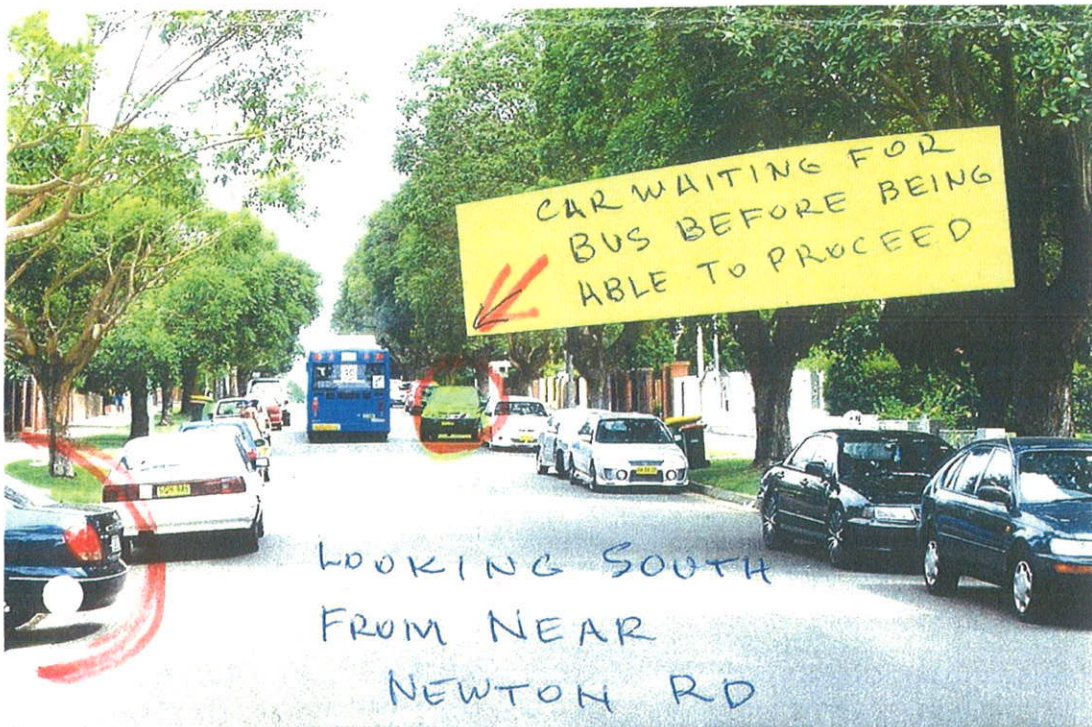 CAR WAITING FOR
BUS BEFORE BEING
ABLE TO PROCEED
LOOKING SOUTH
FROM NEAR
NEWTON RD